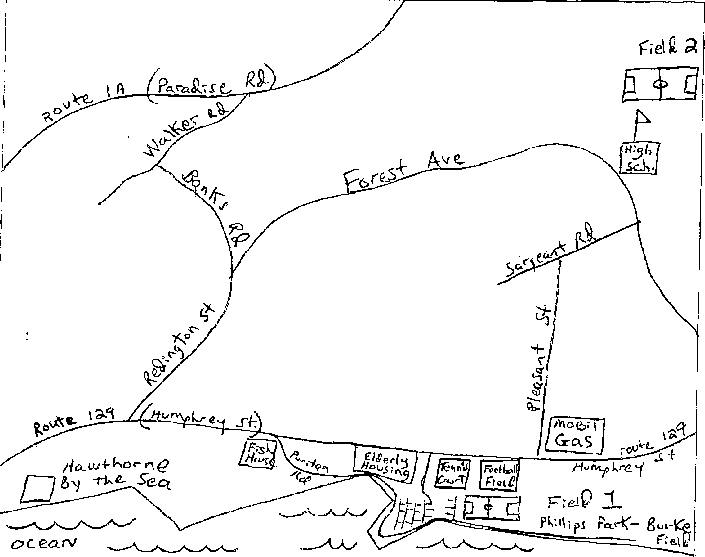 Field 2
Route 1A (Paradise Rd.)
Walker Rd
High
Sch.
Forest Ave
Banks Rd
Sargeant Rd
Redington St
Pleasant St
Route 129 (Humphrey St)
Mobil
Gas
Route 129
Humphrey St
Fish
House
Puritan
Rd
Elderly
Housing
Tennis
Court
Football
Field
Hawthorne
By the Sea
Field 1
Phillips Park - Burke
Field
OCEAN